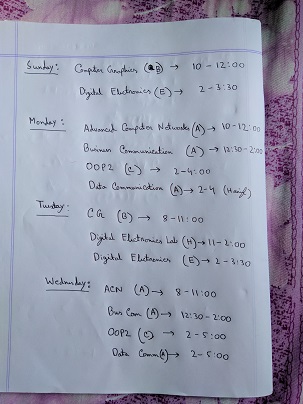 Sunday: Computer Graphics (B) → 10 - 12:00
Digital Electronics (E) → 2 - 3:30
Monday: Advanced Computer Networks (A) → 10-12:00
Business Communication (A) → 12:30-2:00
OOP2 (C) → 2-4:00
Data Communication (A) → 2-4
Tuesday: CG (B) → 8-11:00
Digital Electronics Lab (H) → 11-2:00
Digital Electronics (E) → 2-3:30
Wednesday: ACN (A) → 8-11:00
Bus Com (A) → 12:30-2:00
OOP2 (C) → 2-5:00
Data Comm (A) → 2-5:00